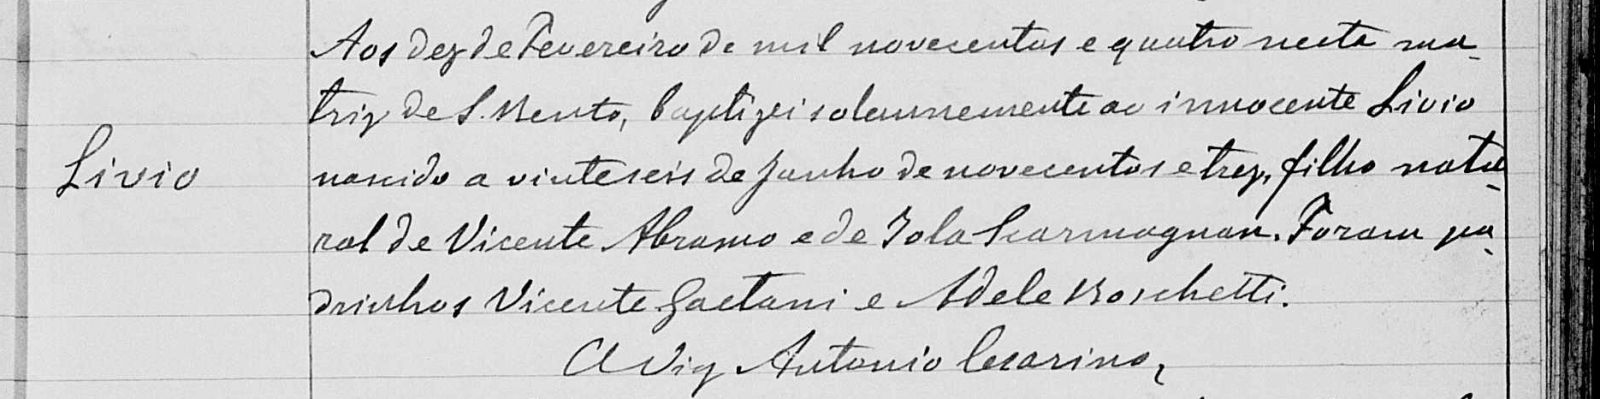 Aos dez de Fevereiro de mil novecentos e quatro nesta ma-
Livio
triz de S. Bento, baptizei solemnemente ao innocente Livio
nascido a vinte seis de Junho de novecentos e trez, filho natu-
ral de Vicente Abramo e de Iola Scarmagnan. Foram pa-
drinhos Vicente Gaetani e Adele Boschetti.
O Vig Antonio Cesarino,